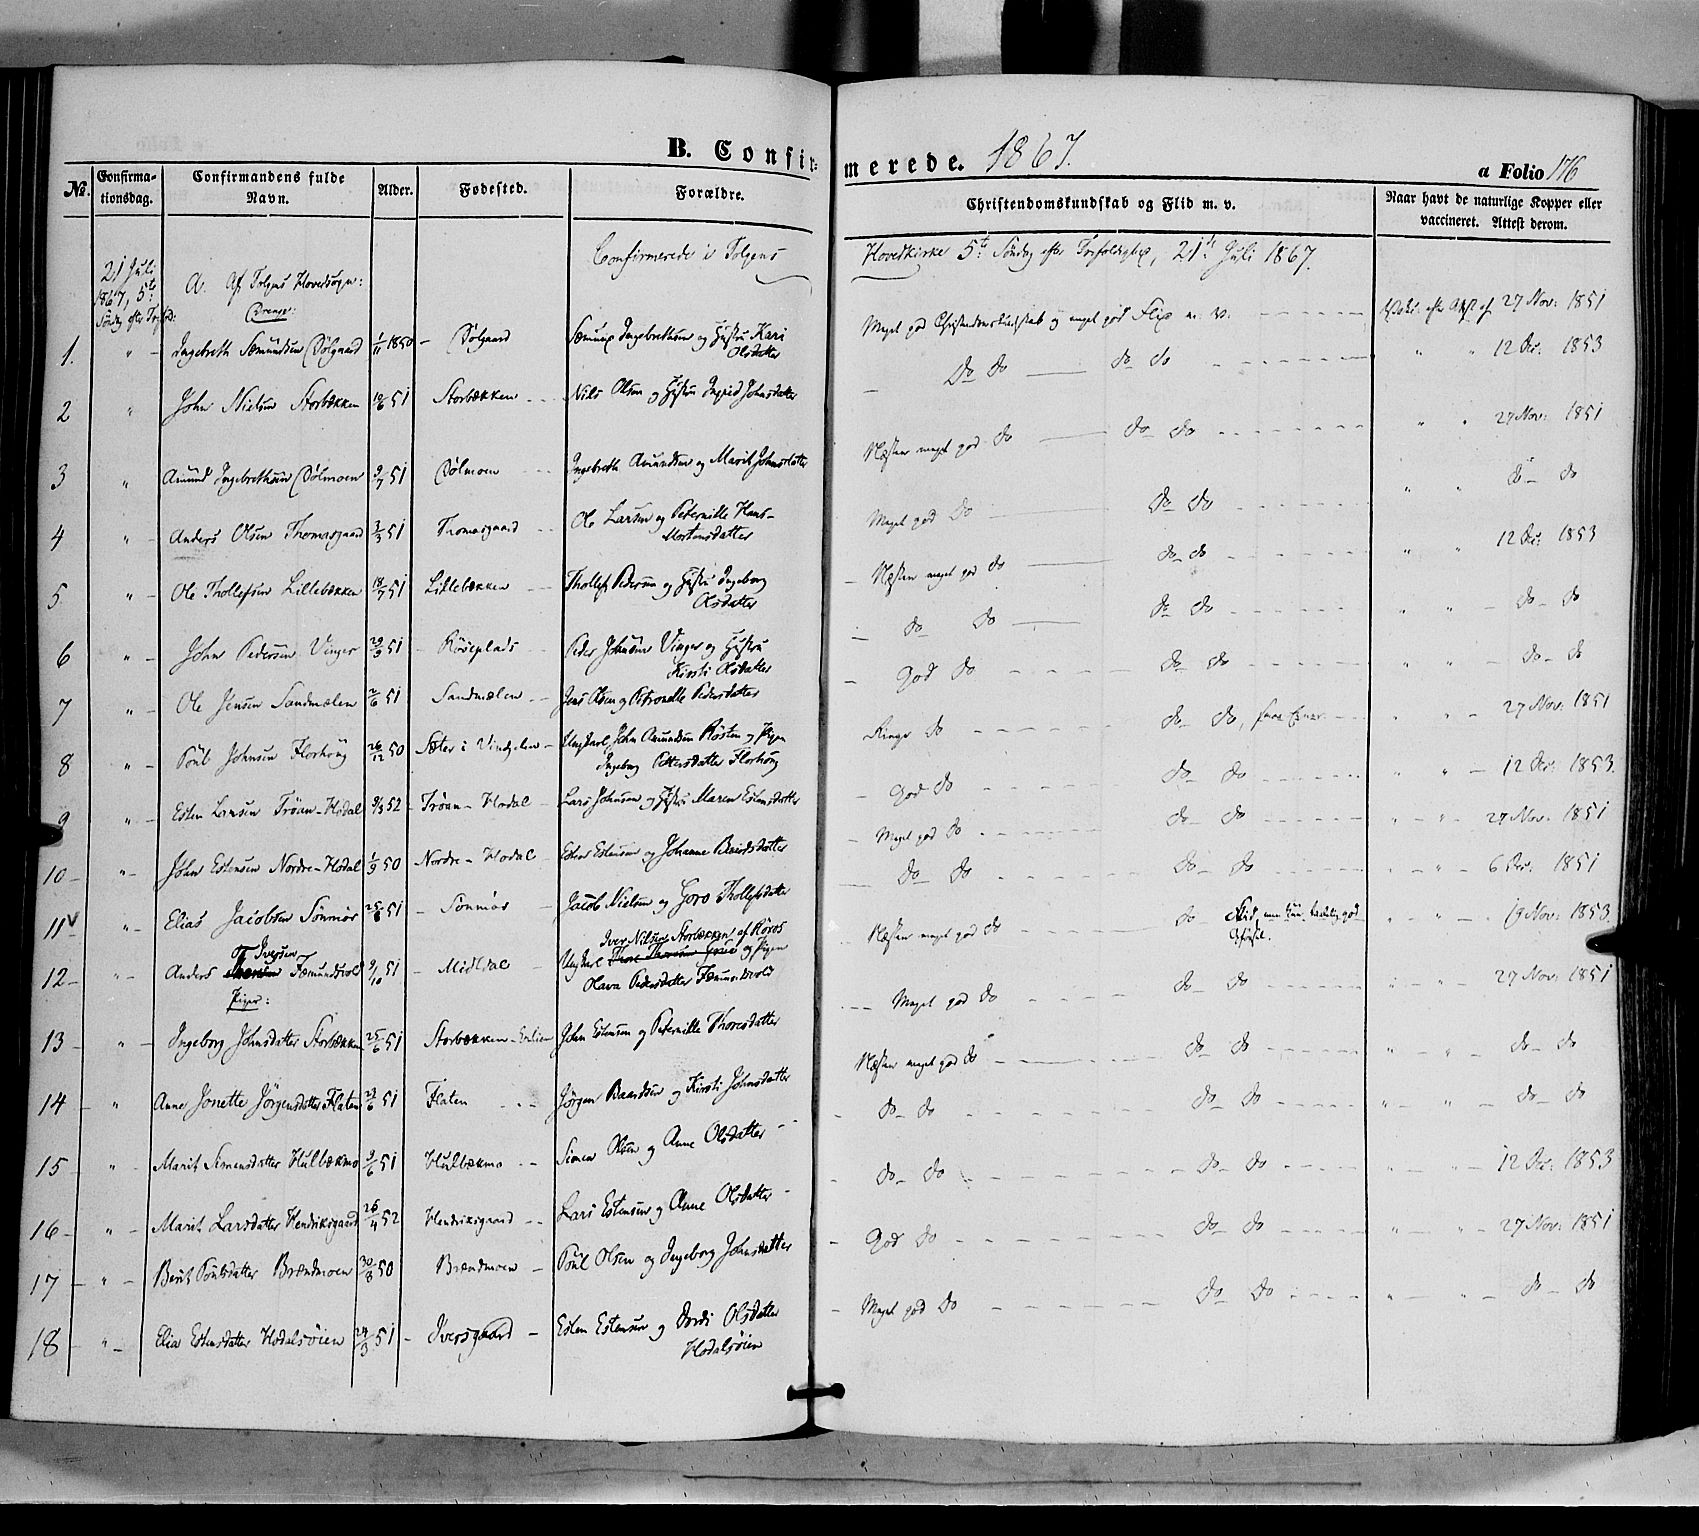 B. Confir-
merede. 1867.
a Folio 176
No.
Confirma-
tionsdag.
Confirmandens fulde
Navn.
Alder.
Fødested.
Forældre.
Christendomskundskab og Flid m. v.
Naar havt de naturlige Kopper eller
vaccineret. Attest derom.
Confirmerede i Tolgens Hovedkirke 5te Søndag efter Trefoldighed, 21de Juli 1867.
21 Juli
1867, 5te
Søndag efter Trefold:
A. Af Tolgens Hovedsogn:
Drenge:
1. " Ingebreth Sæmundsen Dølgaard 1/11 1850 - Dølgaard Sæmund Ingebrethsen og Hustru Kari
Olsdatter
Meget god Christendomskundskab og meget god Flid m. v. Vakc. efter Attest af 27 Nov: 1851
2 " John Nielsen Storbækken 10/6 51 Storbækken Nils Olsen og Hustru Ingrid Johnsdatter
Do do do do " " 12 Dec: 1853
3 " Amund Ingebrethsen Dølmoen 9/7 51 Dølmoen Ingebreth Amundsen og Marit Johnsdatter
Næsten meget god do do do " " 27 Nov: 1851
4 " Anders Olsen Thomasgaard 3/3 51 Thomasgaard Ole Larsen og Pernille Hans-
Mortensdatter
Meget god do do do " " do do
5 " Ole Thollefsen Lillebækken 18/7 51 Lillebækken Thollef Pedersen og Hustru Ingeborg
Olsdatter
Næsten meget god do do do " " 12 Dec: 1853
6 " John Pedersen Vinger 29/9 51 Røseplads Peder Johnsen Vinger og Hustru
Kirsti Olsdatter
do do do do " " do do
7 " Ole Jensen Sandmælen 2/6 51 Sandmælen Jens Olsen og Petronelle Pedersdatter
God do do do " " do do
8 " Poul Johnsen Florhoug 26/12 50 Sæter i Vingelen Ungkarl John Amundsen Røsten og Pigen
Ingeborg Pettersdatter Florhoug
Ringe do do do, " " 27 Nov: 1851
9 " Esten Larsen Trøan-Hodal 9/3 52 Trøan-Hodal Lars Johnsen og Hustru Maren Estensdatter
God do do do " " 12 Dec: 1853.
10 " John Estensen Nordre-Hodal 1/9 50 Nordre-Hodal Esten Estensen og Johanne Baardsdatter
Meget god do do do " " 27 Nov: 1851
11 v " Elias Jacobsen Sømmør 25/8 51 Sømmør Jacob Nielsen og Goro Thollefsdatter
do do do do " " 6 Dec: 1851
12 " Anders Iversen Fæmundsvold 9/10 51 Midtdal Ungkarl Iver Nilsen Storbækken af Røros og Pigen
Olava Pedersdatter Fæmundsvold
Næsten meget god do do Flid, men kun taalelig god
Opførsel. " " 19 Nov: 1853.
Piger:
13 " Ingeborg Johnsdatter Storbækken 25/6 51 Storbækken John Estensen og Pernille Thoresdatter
Meget god do do do " " 27 Nov: 1851
14 " Anne Jonette Jørgensdatter Flaten 23/6 51 Flaten Jørgen Baardsen og Kirsti Johnsdatter
Næsten meget god do do do " " do do
15 " Marit Simensdatter Hulbækmo 9/6 51 Hulbækmo Simen Olsen og Anne Olsdatter
do do do do " " do do
16 " Marit Larsdatter Hendriksgaard 26/4 52 Hendriksgaard Lars Estensen og Anne Olsdatter
do do do do " " 12 Dec: 1853
17 " Berit Poulsdatter Brændmoen 30/8 50 Brændmoen Poul Olsen og Ingeborg Johnsdatter
God do do do " " 27 Nov: 1851
18 " Elia Estensdatter Hodalsøien 24/3 51 Iversgaard Esten Estensen og Dordi Olsdatter
Hodalsøien
Meget god do do do " " do do